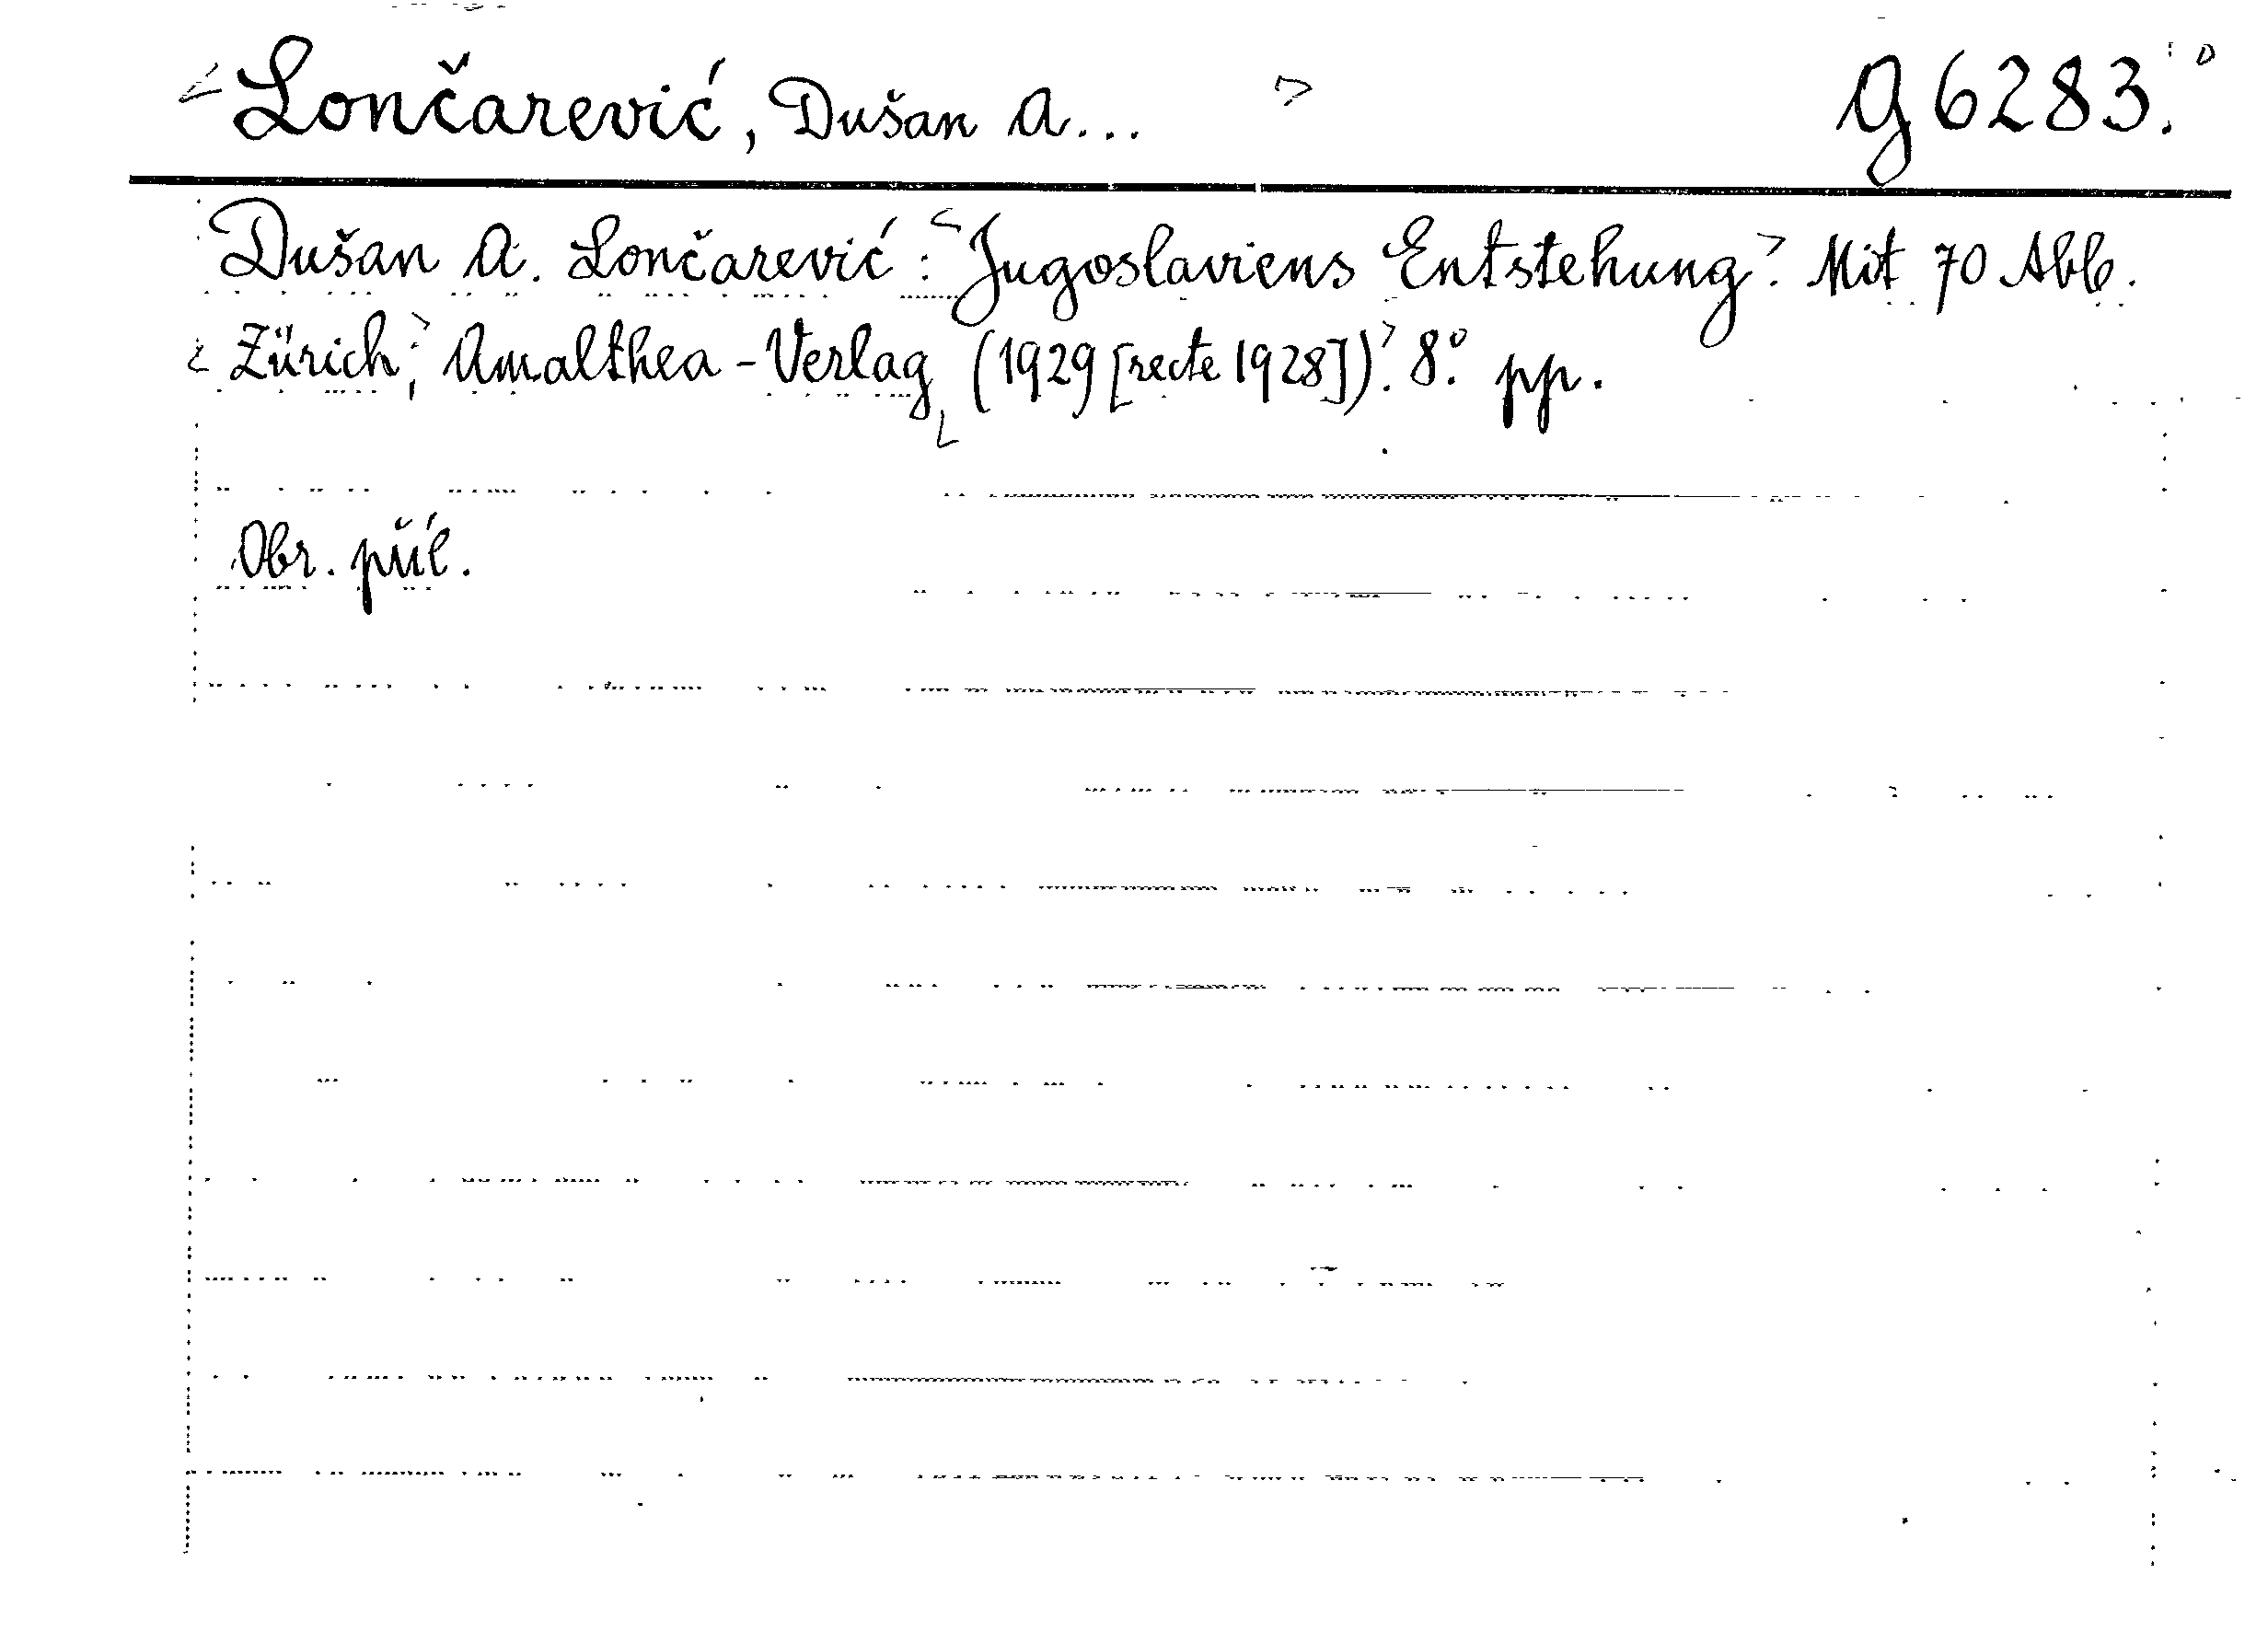 Lončarević, Dušan A... g 6283.
Dušan A. Lončarević: Jugoslaviens Entstehung. Mit 70 Abb.
Zürich, Amalthea-Verlag (1929 [recte 1928]). 8° pp.
Obr. příl.